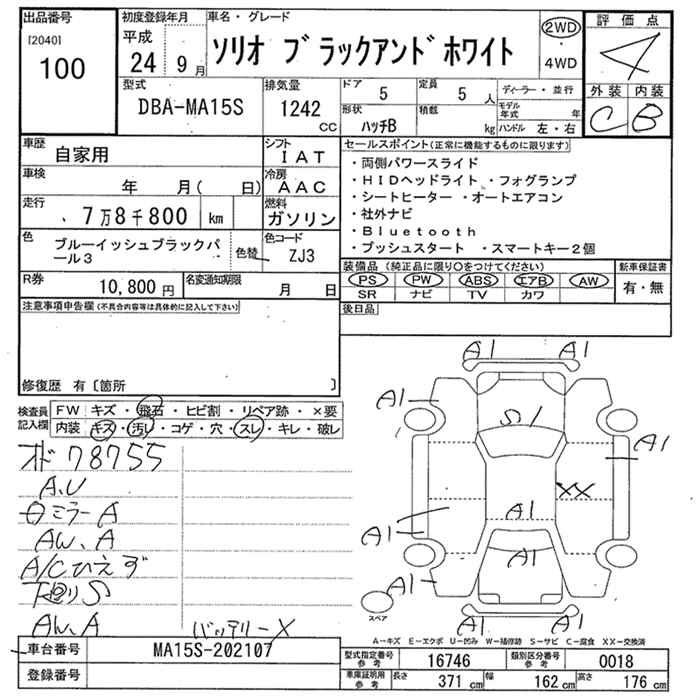 出品番号
[2040]
100
初度登録年月
平成
24 9月
車名・グレード
ソリオ ブラックアンドホワイト
2WD
・
4WD
評価点
4
外装 内装
C B
型式
DBA-MA15S
排気量
1242
CC
ドア
5
定員
5 人
ディーラー・並行
形状
ハッチB
積載
kg
モデル年式 年
ハンドル 左・右
車歴
自家用
シフト
IAT
車検
年 月( 日)
冷房
AAC
走行
7万8千800 km
燃料
ガソリン
色
ブルーイッシュブラックパ
ール3
色替
色コード
ZJ3
R券
10,800円
名変通知期限
月 日
セールスポイント(正常に機能するものに限ります)
・両側パワースライド
・HIDヘッドライト ・フォグランプ
・シートヒーター ・オートエアコン
・社外ナビ
・Bluetooth
・プッシュスタート ・スマートキー2個
装備品(純正品に限り○をつけてください)
PS PW ABS エアB AW
SR ナビ TV カワ
新車保証書
有・無
後日品
注意事項申告欄(不具合内容等は具体的に記入して下さい)
修復歴 有〔箇所 〕
検査員
記入欄
FW キズ・飛石・ヒビ割・リペア跡・×要
内装 キズ・汚レ・コゲ・穴・スレ・キレ・破レ
78755
A.U
ミラーA
AW、A
A/Cひえず
下廻りS
A
バッテリーX
A1 A1
A1
S1
A1
XX
A1
A1
A1
A1
A1 A1
スペア
A-キズ E-エクボ U-凹み W-補修跡 S-サビ C-腐食 XX-交換済
車台番号
MA15S-202107
登録番号
型式指定番号
参考
16746
類別区分番号
参考
0018
車庫証明用
参考
長さ
371 cm
幅
162 cm
高さ
176 cm